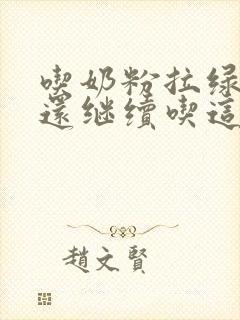 喫奶粉拉綠
還继續喫這
趙文賢